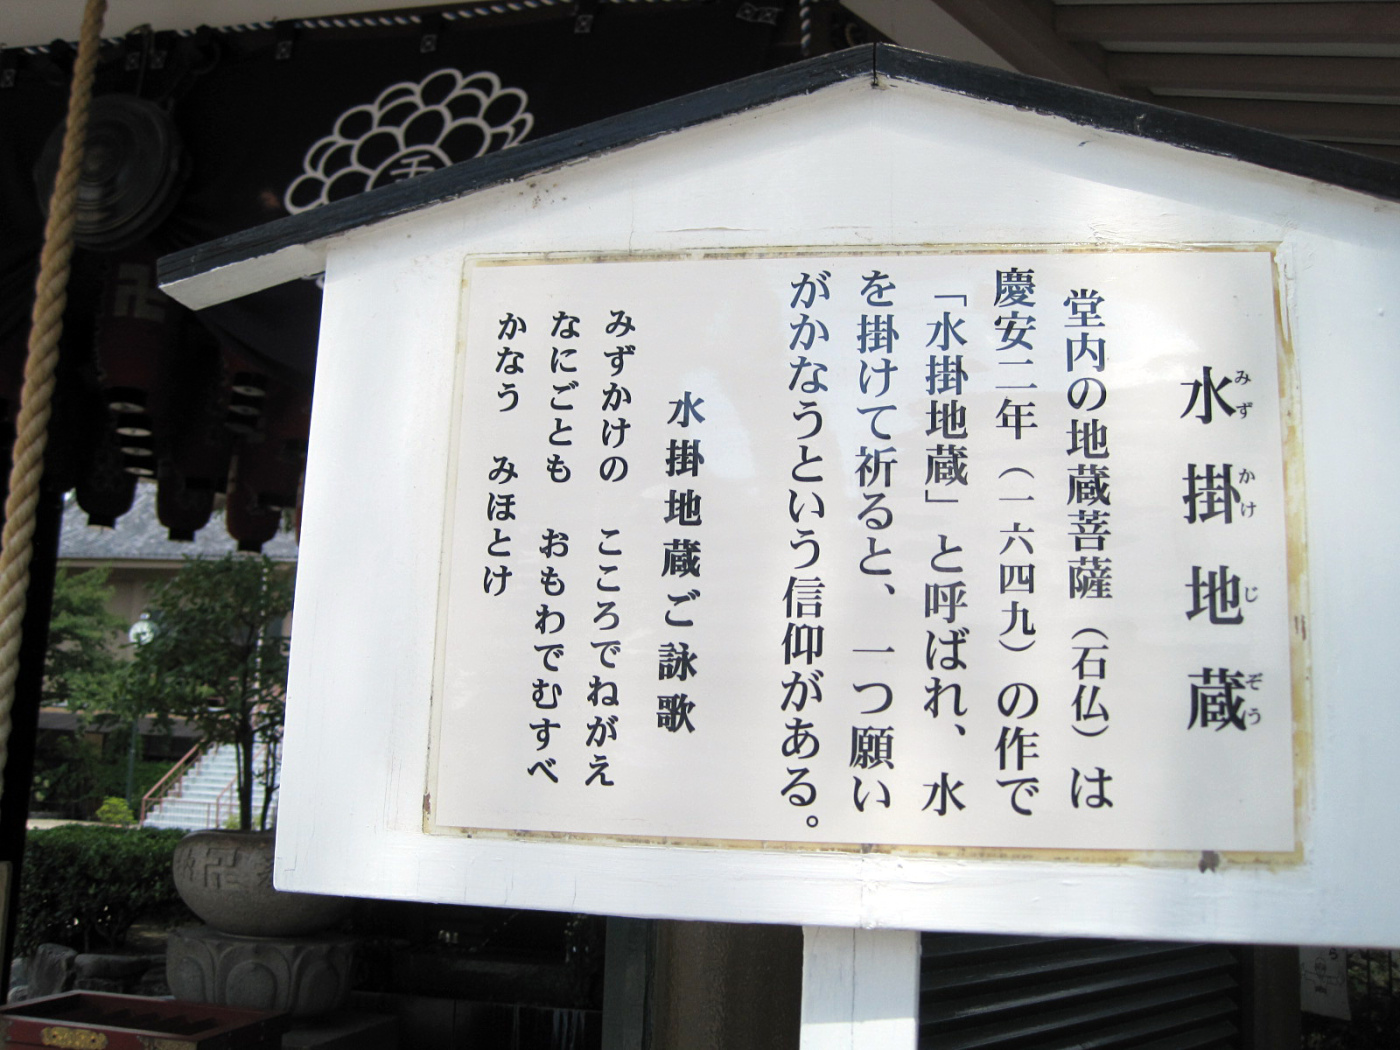 水掛地蔵
みず かけ じ ぞう
堂内の地蔵菩薩（石仏）は
慶安二年（一六四九）の作で
「水掛地蔵」と呼ばれ、水
を掛けて祈ると、一つ願い
がかなうという信仰がある。
水掛地蔵ご詠歌
みずかけの　こころでねがえ
なにごとも　おもわでむすべ
かなう　みほとけ
卍
卍